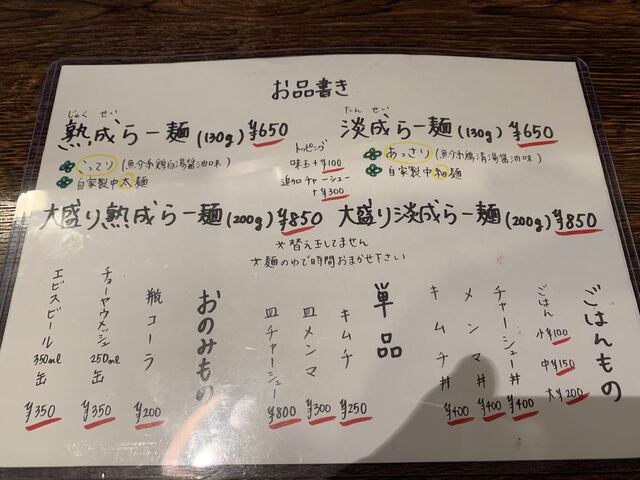 お品書き
じゅく せい
熟成らー麺 (130g) ¥650
こってり (魚介系鶏白湯醤油味)
自家製中太麺
トッピング
味玉+¥100
追加チャーシュー
+¥300
たん せい
淡成らー麺 (130g) ¥650
あっさり (魚介系鶏清湯醤油味)
自家製中細麺
大盛り熟成らー麺 (200g) ¥850
大盛り淡成らー麺 (200g) ¥850
*替え玉してません
*麺のゆで時間おまかせ下さい
ごはんもの
ごはん 小¥100
中¥150
大¥200
チャーシュー丼 ¥400
メンマ丼 ¥400
キムチ丼 ¥400
単品
キムチ ¥250
皿メンマ ¥300
皿チャーシュー ¥800
おのみもの
瓶コーラ ¥200
チョーヤウメッシュ 250ml缶 ¥350
エビスビール 350ml缶 ¥350